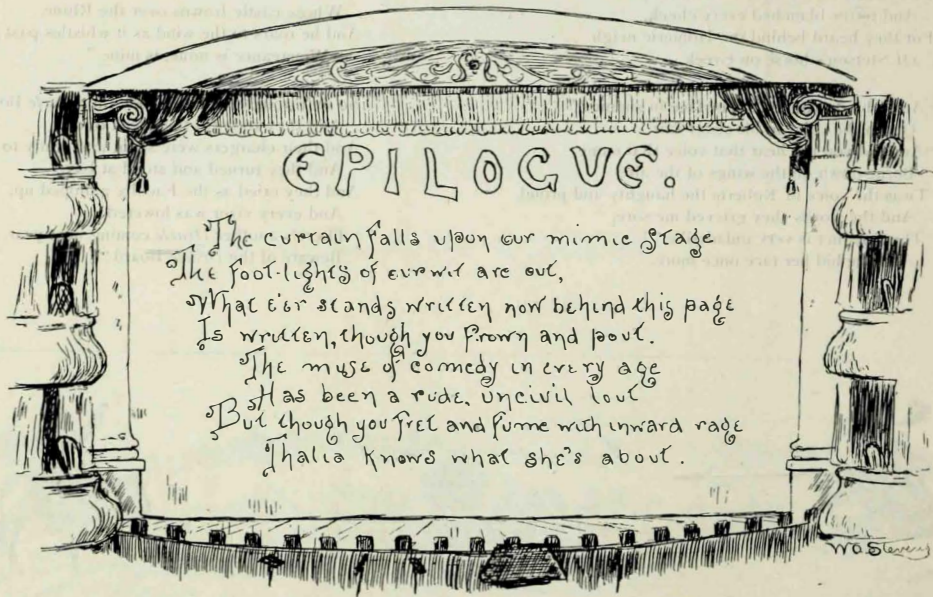 EPILOGUE.
The curtain falls upon our mimic stage
The foot-lights of our wit are out,
What e'er stands written now behind this page
Is written, though you frown and pout.
The muse of comedy in every age
Has been a rude, uncivil lout
But though you fret and fume with inward rage
Thalia knows what she's about.
W.O. Stevens